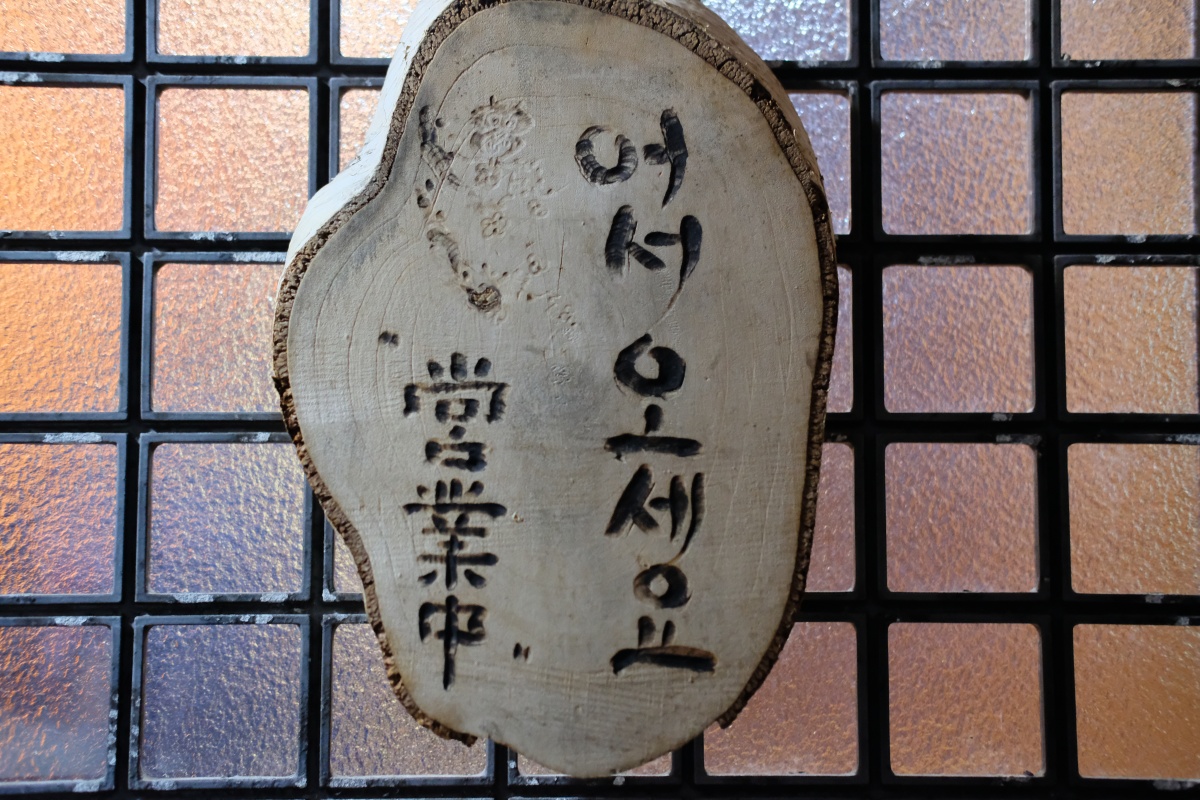 어서오세요
"營業中"